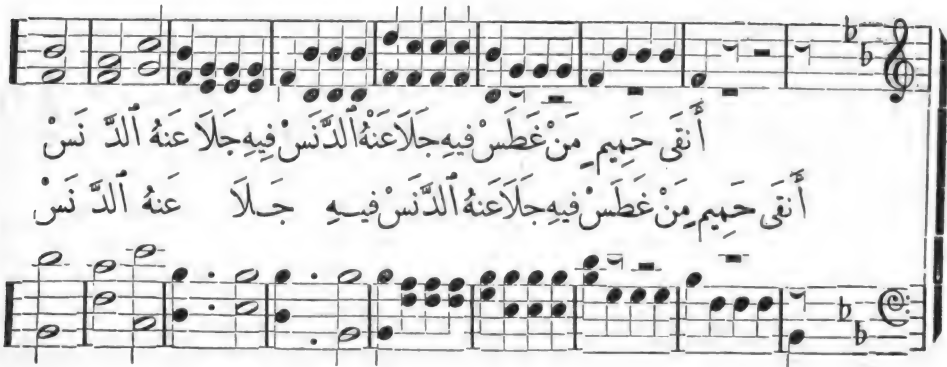 أَنقَى حَمِيمٍ مَنْ غَطَسْ فيهِ جَلَا عَنْهُ ٱلدَّنَسْ فِيهِ جَلَا عَنهُ ٱلدَّ نَسْ
أَنقَى حَمِيمٍ مَنْ غَطَسْ فيهِ جَلَا عَنهُ ٱلدَّنَسْ فيـهِ جَـلَا عَنهُ ٱلدَّ نَسْ